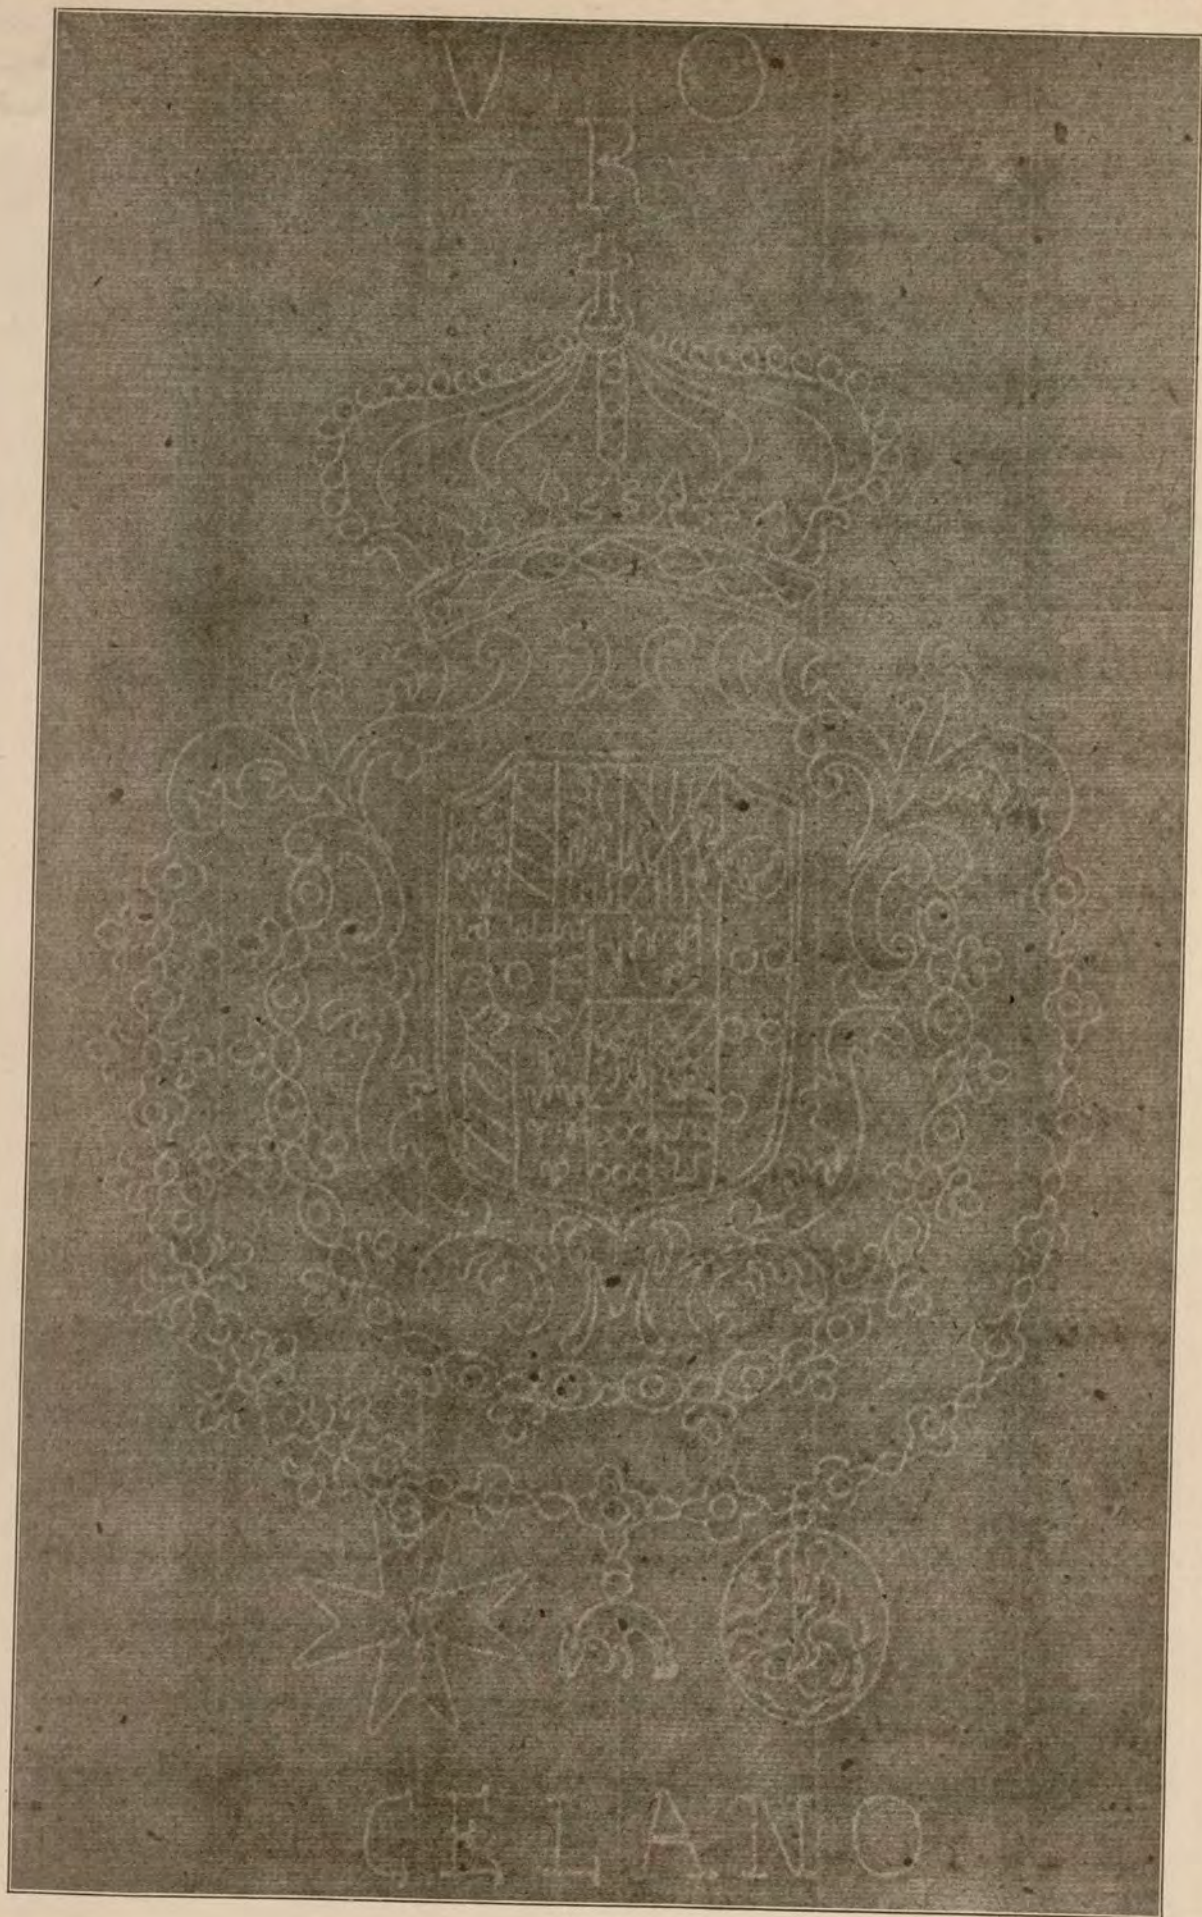 V O
R
CELANO